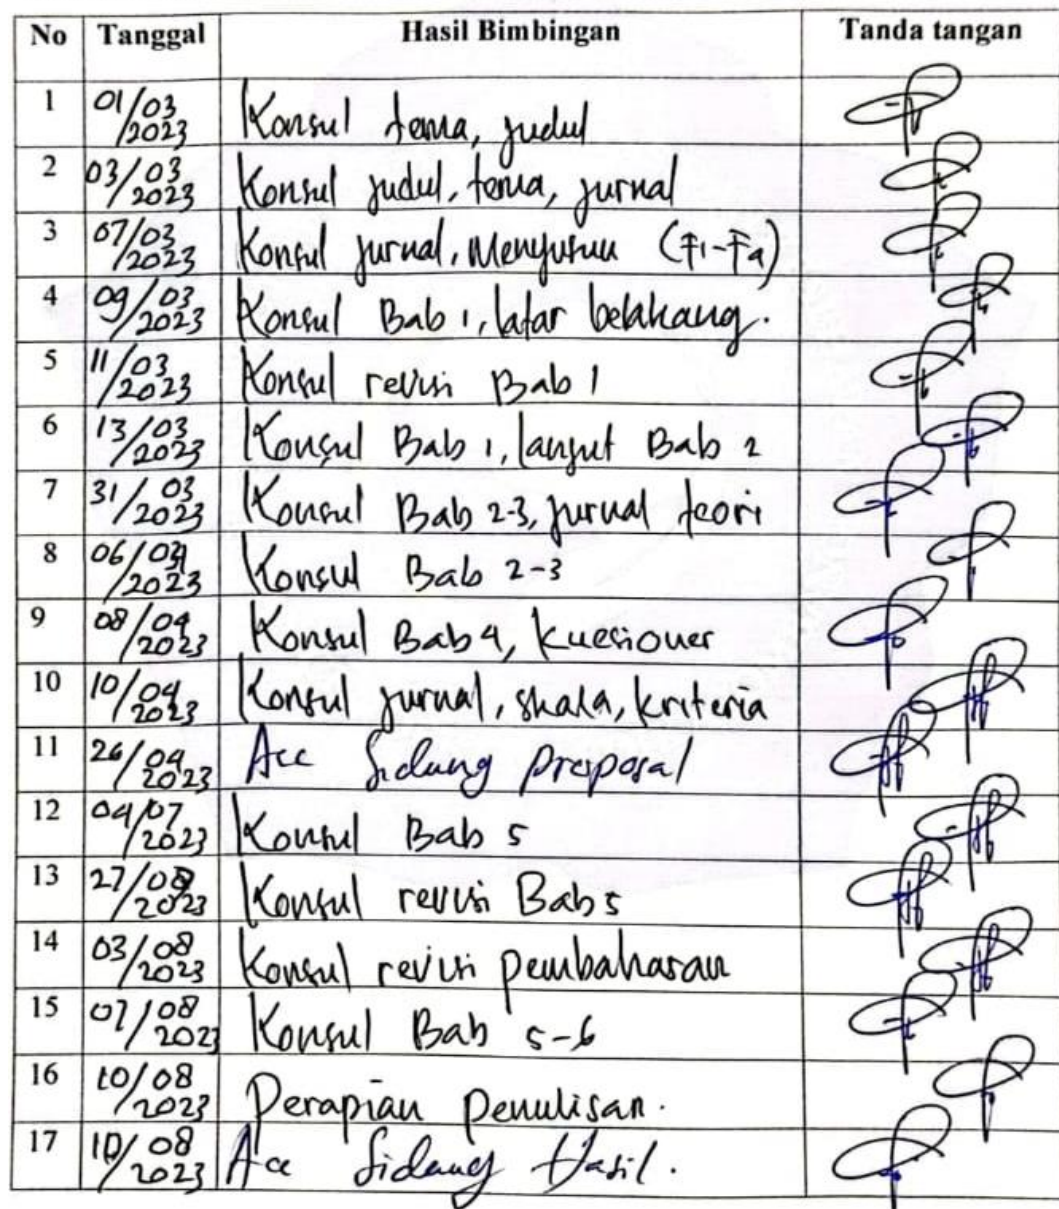 No Tanggal Hasil Bimbingan Tanda tangan
1 01/03/2023 Konsul tema, judul
2 03/03/2023 Konsul judul, tema, jurnal
3 07/03/2023 Konsul jurnal, Menyusun (F1-F4)
4 09/03/2023 Konsul Bab 1, latar belakang.
5 11/03/2023 Konsul revisi Bab 1
6 13/03/2023 Konsul Bab 1, lanjut Bab 2
7 31/03/2023 Konsul Bab 2-3, jurnal teori
8 06/04/2023 Konsul Bab 2-3
9 08/04/2023 Konsul Bab 4, kuesioner
10 10/04/2023 Konsul jurnal, skala, kriteria
11 26/04/2023 Acc Sidang proposal
12 04/07/2023 Konsul Bab 5
13 27/ /2023 Konsul revisi Bab 5
14 03/08/2023 Konsul revisi pembahasan
15 07/08/2023 Konsul Bab 5-6
16 10/08/2023 Perapian penulisan.
17 10/08/2023 Acc Sidang Hasil.